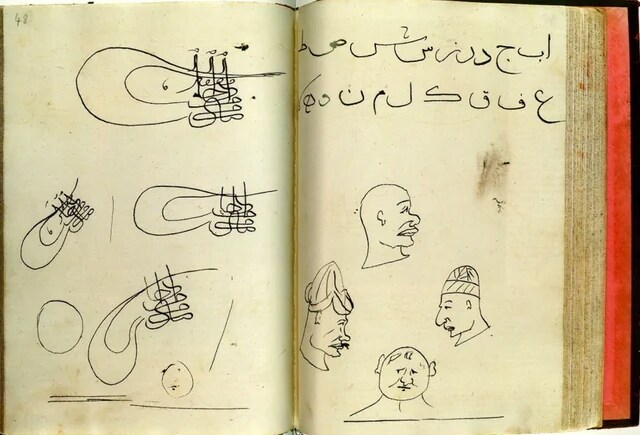 48
ا ب ج د ر س ش ص ط
ع ف ق ك ل م ن و ه